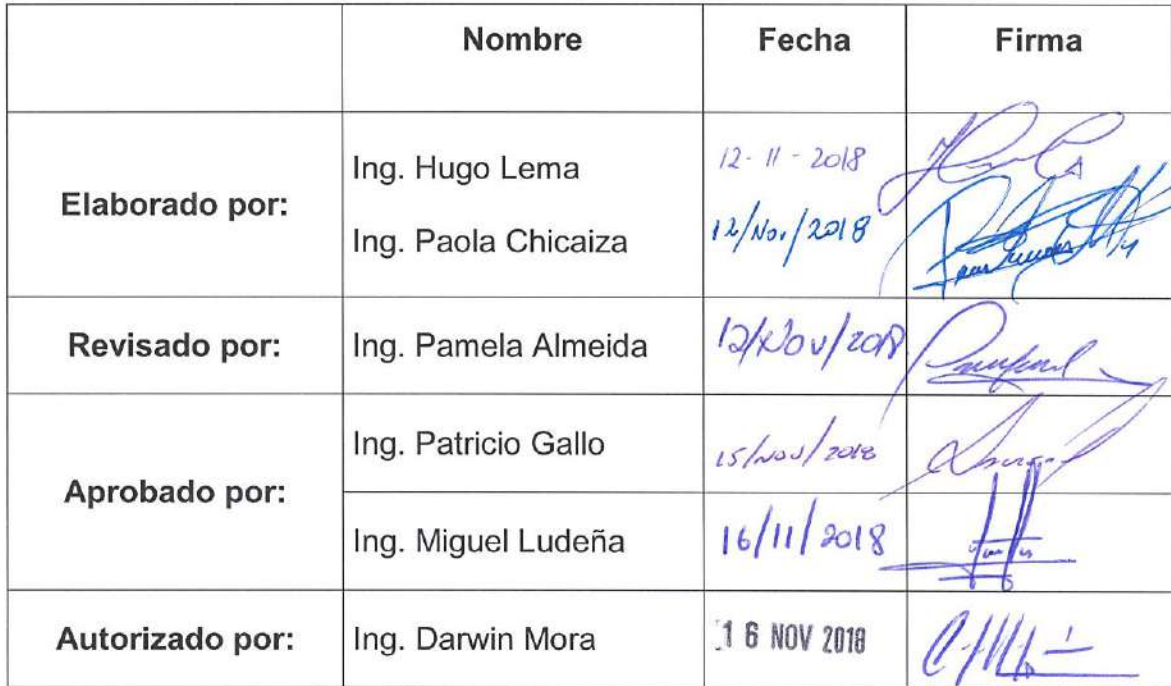 Nombre Fecha Firma
Elaborado por:
Ing. Hugo Lema 12-11-2018
Ing. Paola Chicaiza 12/Nov/2018
Revisado por: Ing. Pamela Almeida 12/Nov/2018
Aprobado por:
Ing. Patricio Gallo 15/Nov/2018
Ing. Miguel Ludeña 16/11/2018
Autorizado por: Ing. Darwin Mora 16 NOV 2018